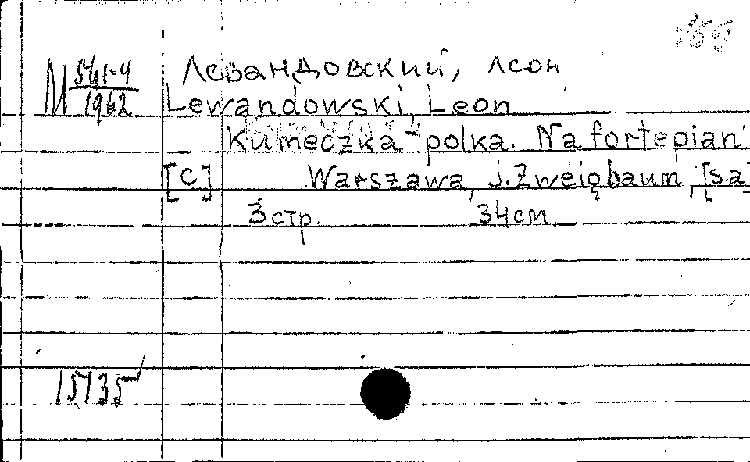 Левандовский, Леон
M 541-4/1962 Lewandowski, Leon
Kumeczka-polka. Na fortepian
[C] Warszawa, J. Zweigbaum, [sa]
3 стр. 34 см
15135